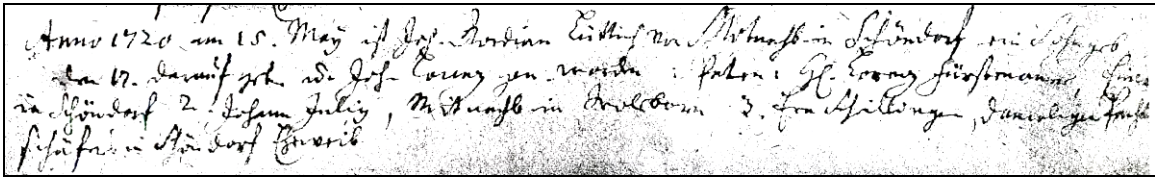 Anno 1720 am 15. May ist Joh. Gordian Lüttich von Mitnachb. in Schöndorf ein Sohn geb.
den 17. darauf get. u. Joh. Lorenz gen. worden : Paten: 1. H. Lorenz Fürstenau
in Schöndorf 2. Johann Julig, Mitnachb. in Wolsborn 3. Schillingen, damaligen Pacht
schäfers in Schöndorf Eheweib